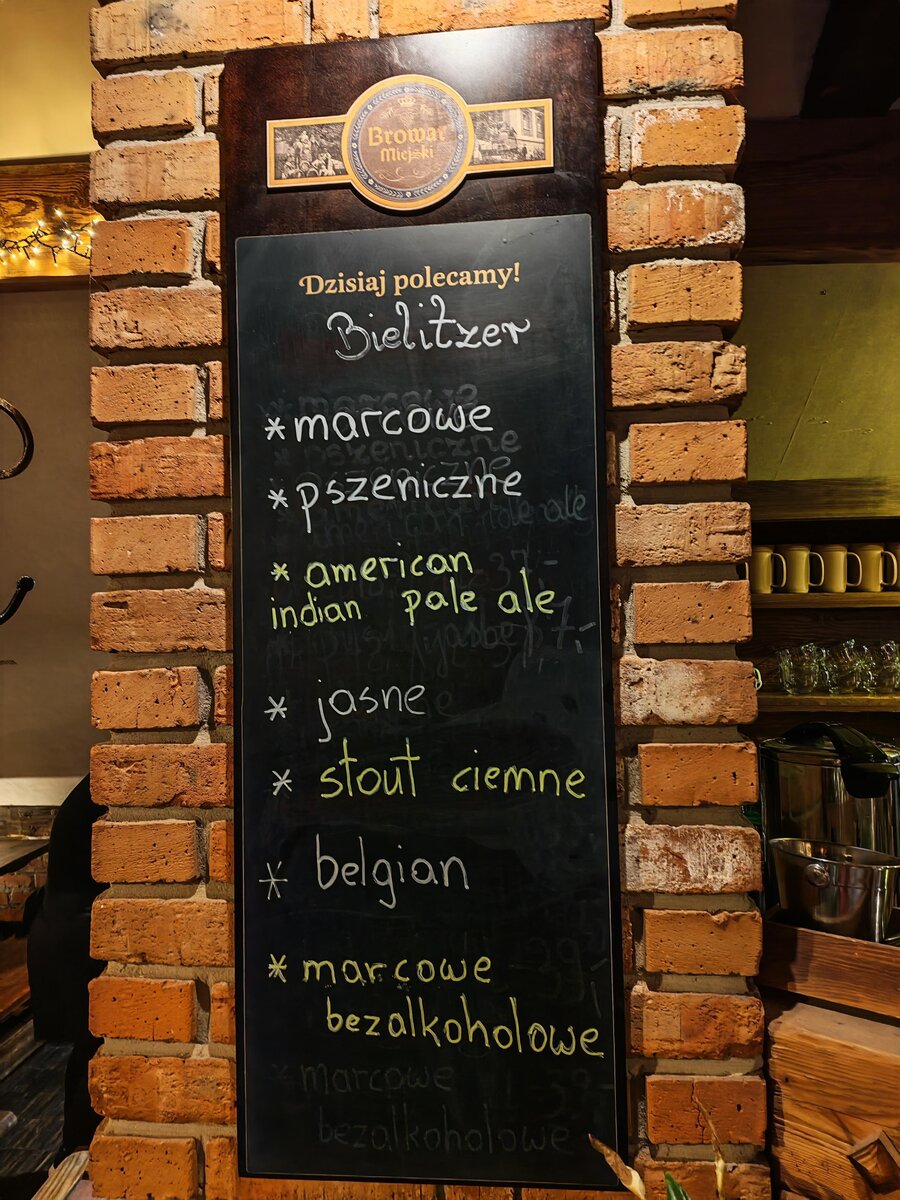 Browar
Miejski
Dzisiaj polecamy!
Bielitzer
* marcowe
* pszeniczne
* american
indian pale ale
* jasne
* stout ciemne
* belgian
* marcowe
bezalkoholowe
marcowe
bezalkoholowe